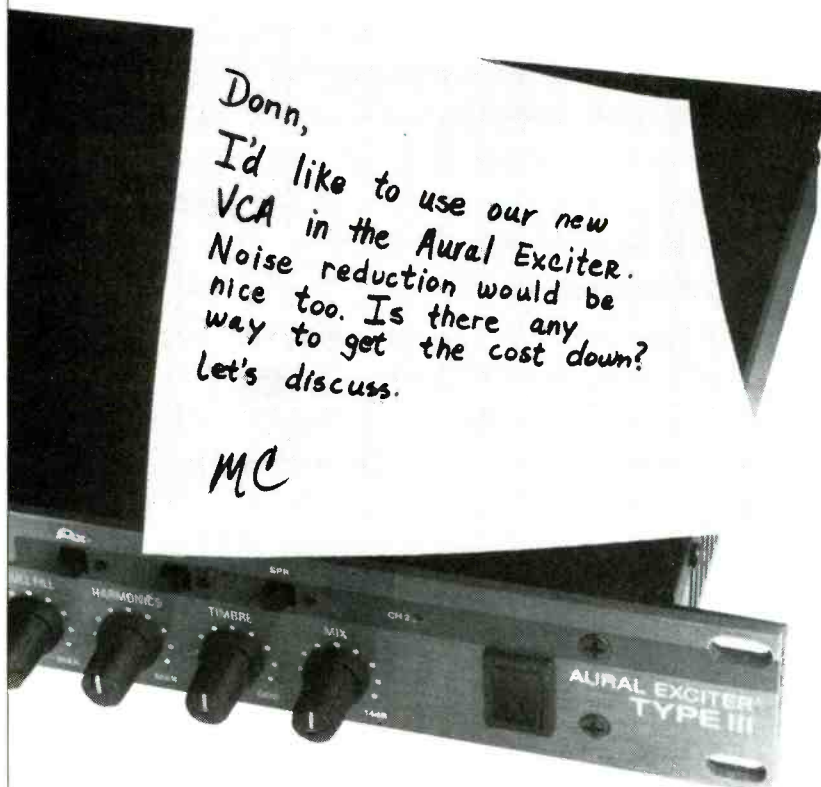 Donn,
I'd like to use our new
VCA in the Aural Exciter.
Noise reduction would be
nice too. Is there any
way to get the cost down?
Let's discuss.
MC
SPR
HARMONICS
TIMBRE
MIX
CH 2
AURAL EXCITER
TYPE III